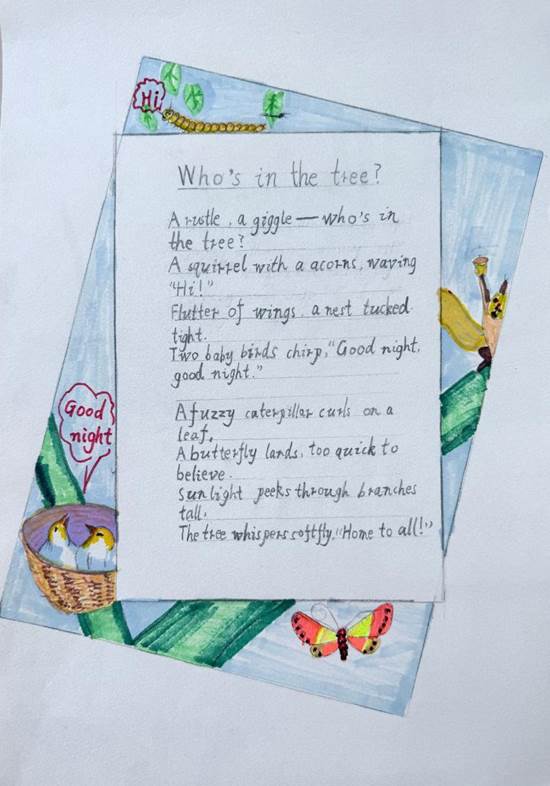 Hi
Who's in the tree?
A rustle, a giggle — who's in
the tree?
A squirrel with a acorns, waving
"Hi!"
Flutter of wings, a nest tucked
tight.
Two baby birds chirp, "Good night,
good night."
A fuzzy caterpillar curls on a
leaf.
A butterfly lands, too quick to
believe.
Sunlight peeks through branches
tall.
The tree whispers softfly, "Home to all!"
Good
night